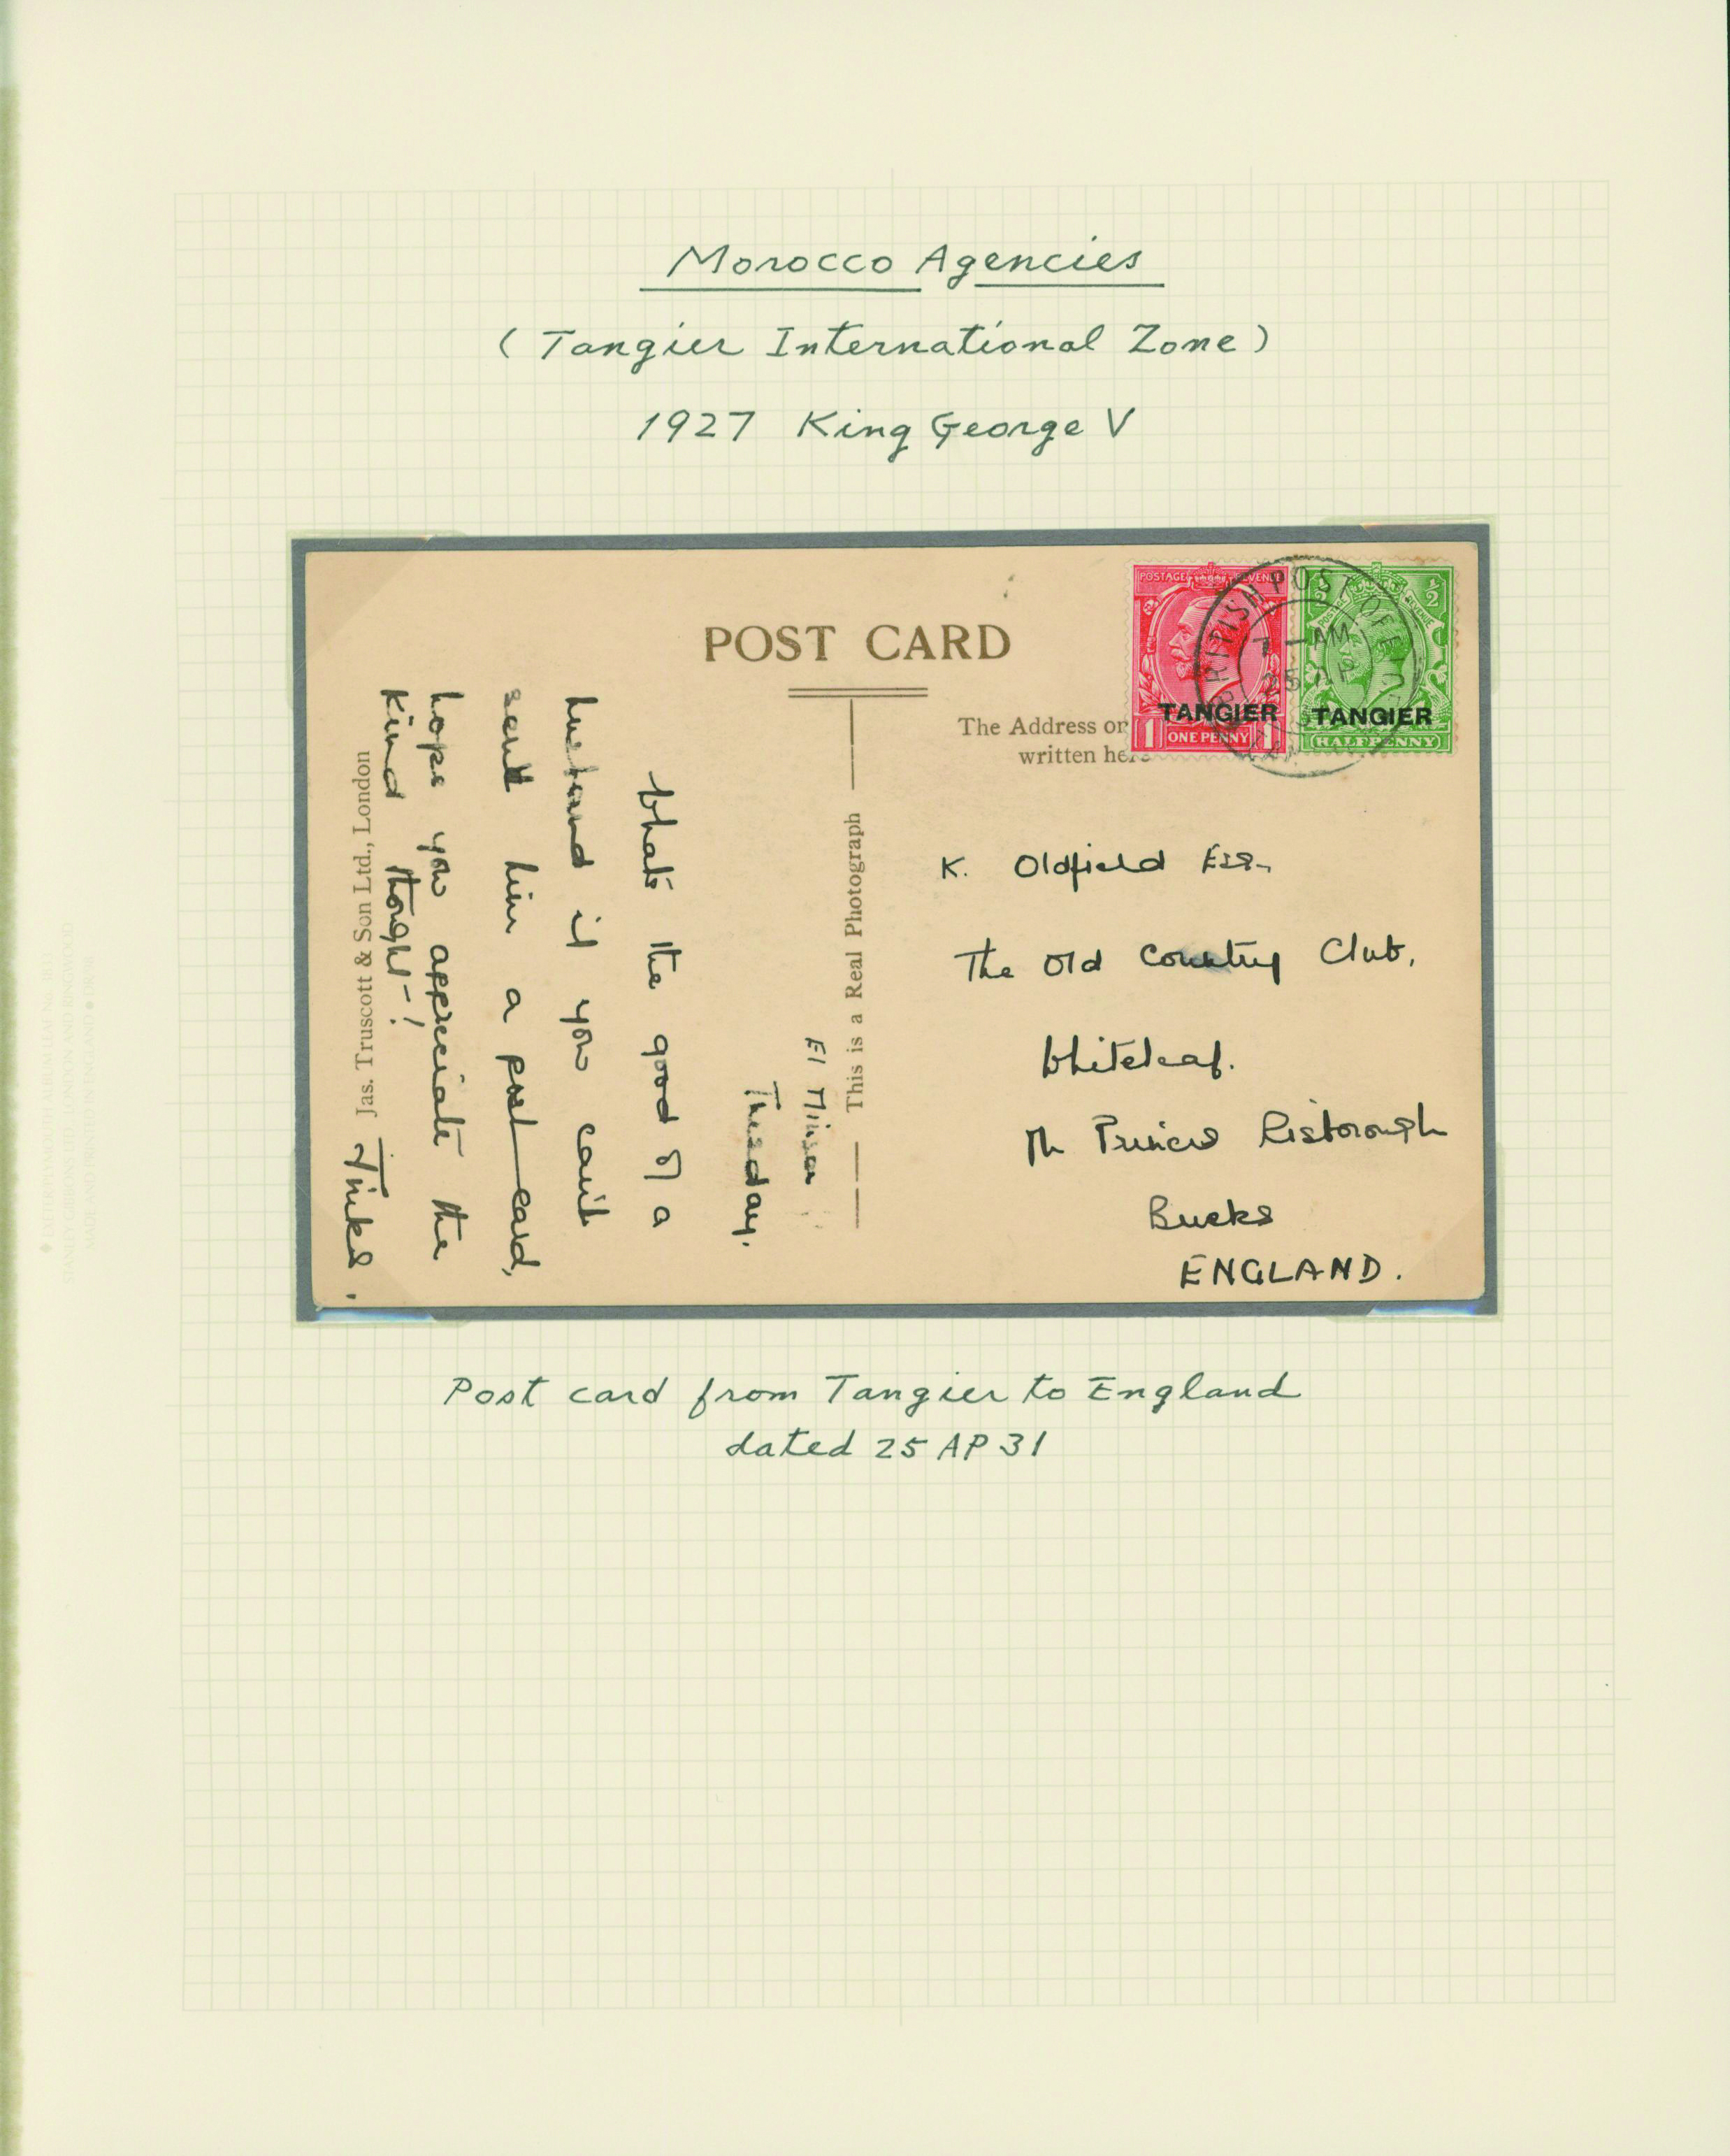 Morocco Agencies
(Tangier International Zone)
1927 King George V
POST CARD
POSTAGE REVENUE
TANGIER
1 ONE PENNY 1
½
TANGIER
HALFPENNY
BRITISH POST OFFICE
7 - AM
25 AP
The Address on
written here
This is a Real Photograph
Jas. Truscott & Son Ltd., London
El Minzar
Thesday.
What's the good of a
husband if you can't
send him a post-card,
hope you appreciate the
kind thought - !
Jinks.
K. Oldfield Esq.
The Old Country Club,
Whiteleaf.
Nr Princes Risborough
Bucks
ENGLAND.
Post card from Tangier to England
dated 25 AP 31